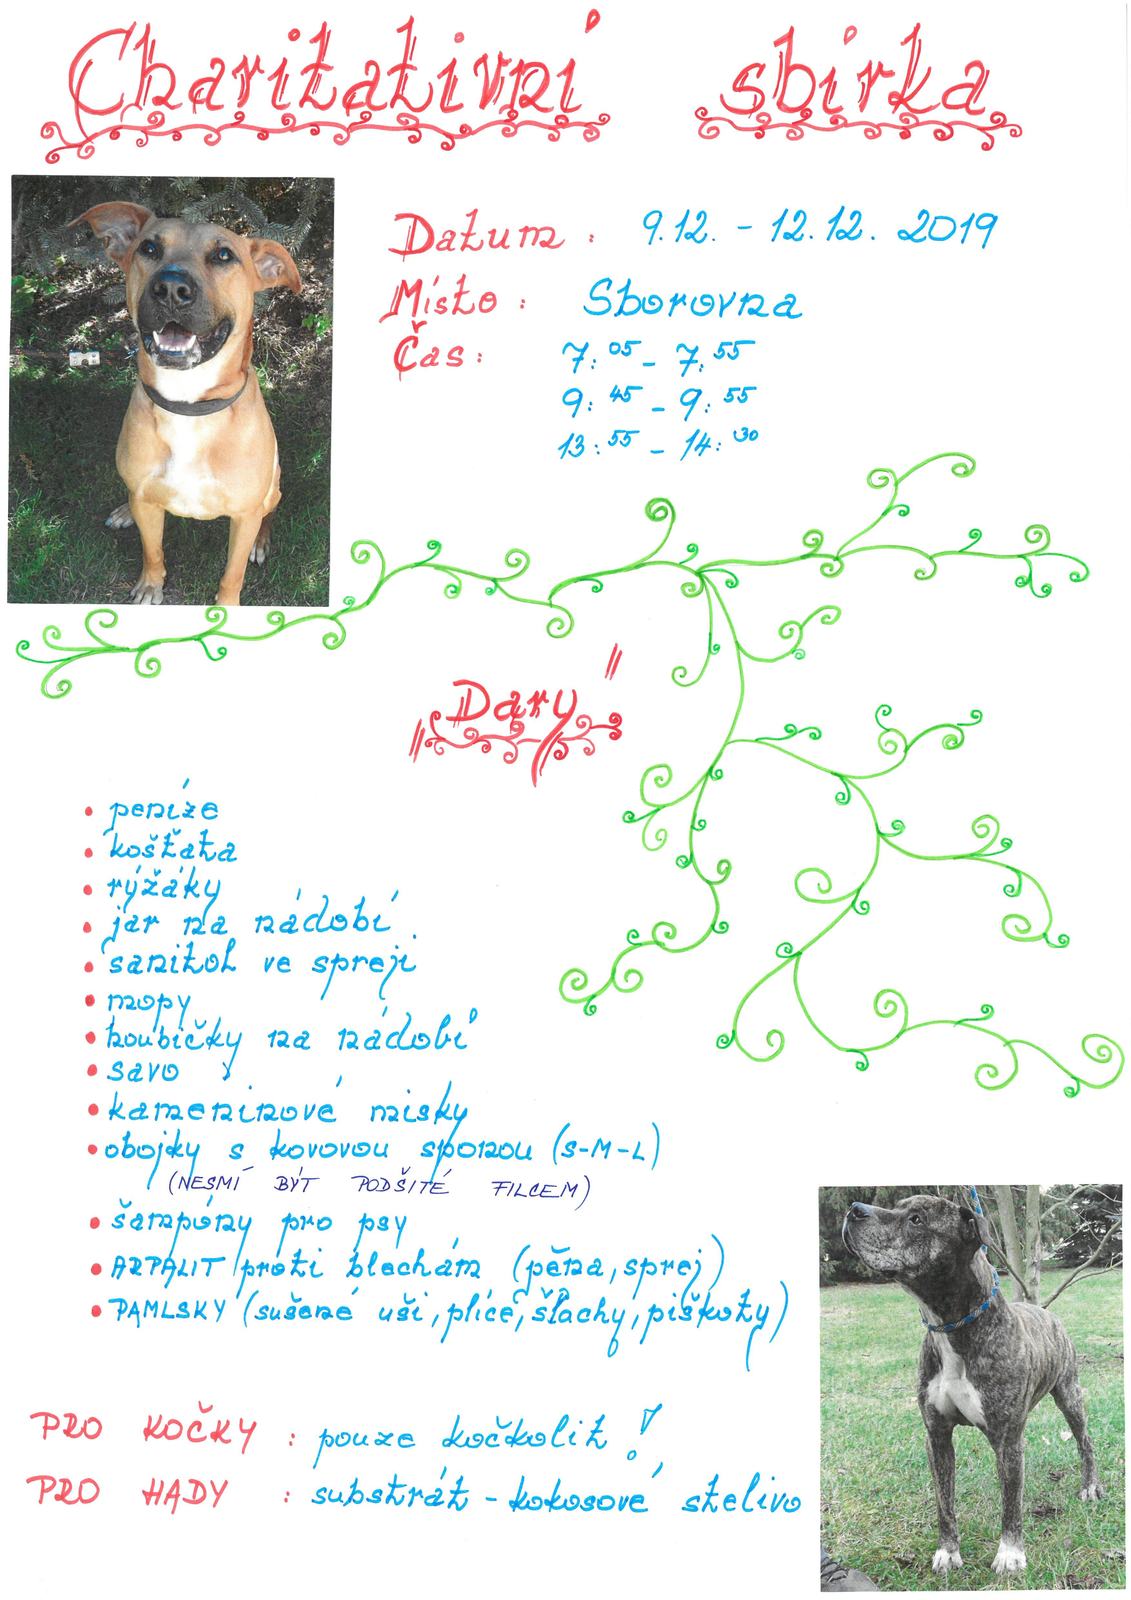 Charitativní sbírka
Datum: 9.12. - 12.12. 2019
Místo: Sborovna
Čas: 7:05 - 7:55
9:45 - 9:55
13:55 - 14:30
"Dary"
• peníze
• košťata
• rýžáky
• jar na nádobí
• sanitol ve spreji
• mopy
• houbičky na nádobí
• savo
• kameninové misky
• obojky s kovovou sponou (S-M-L)
(NESMÍ BÝT PODŠITÉ FILCEM)
• šampóny pro psy
• ARPALIT proti blechám (pěna, sprej)
• PAMLSKY (sušené uši, plíce, šlachy, piškoty)
PRO KOČKY : pouze kočkolit!
PRO HADY : substrát - kokosové stelivo